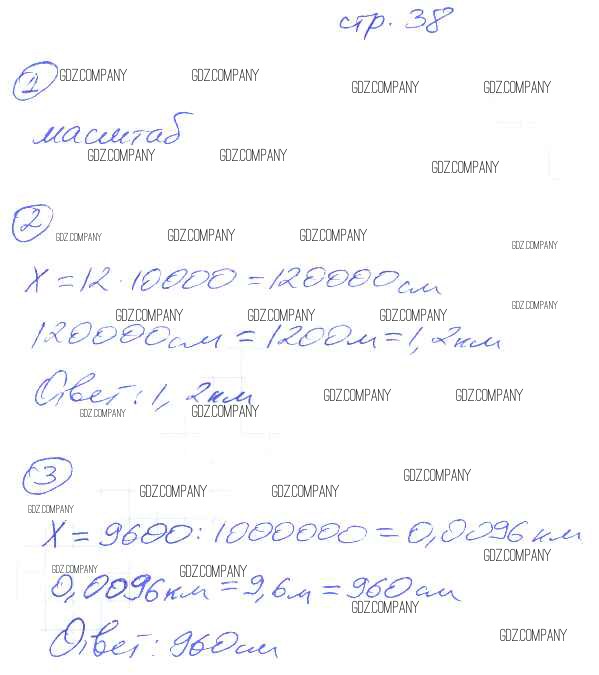 стр. 38
1
GDZ.COMPANY GDZ.COMPANY GDZ.COMPANY GDZ.COMPANY
масштаб
GDZ.COMPANY GDZ.COMPANY GDZ.COMPANY
2
GDZ.COMPANY GDZ.COMPANY GDZ.COMPANY GDZ.COMPANY
X = 12 · 10000 = 120000 см
GDZ.COMPANY GDZ.COMPANY GDZ.COMPANY GDZ.COMPANY
120000 см = 1200 м = 1,2 км
Ответ: 1,2 км
GDZ.COMPANY GDZ.COMPANY GDZ.COMPANY GDZ.COMPANY
3
GDZ.COMPANY GDZ.COMPANY GDZ.COMPANY GDZ.COMPANY
X = 9600 : 1000000 = 0,0096 км
GDZ.COMPANY GDZ.COMPANY GDZ.COMPANY
0,0096 км = 9,6 м = 960 см
GDZ.COMPANY
Ответ: 960 см
GDZ.COMPANY